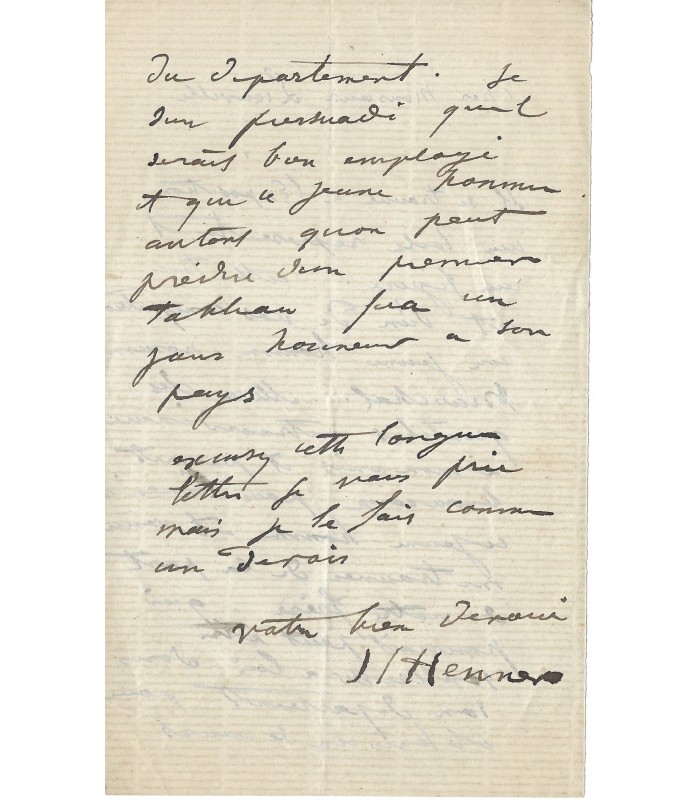 du departement. Je
suis persuadé quil
serait bien employé
et que ce jeune homme
autant quon peut
prédire d'un premier
tableau fera un
jour honneur a son
pays
excusez cette longue
lettre je vous prie
mais je le fais comme
un devoir
votre bien devoué
JJ Henner